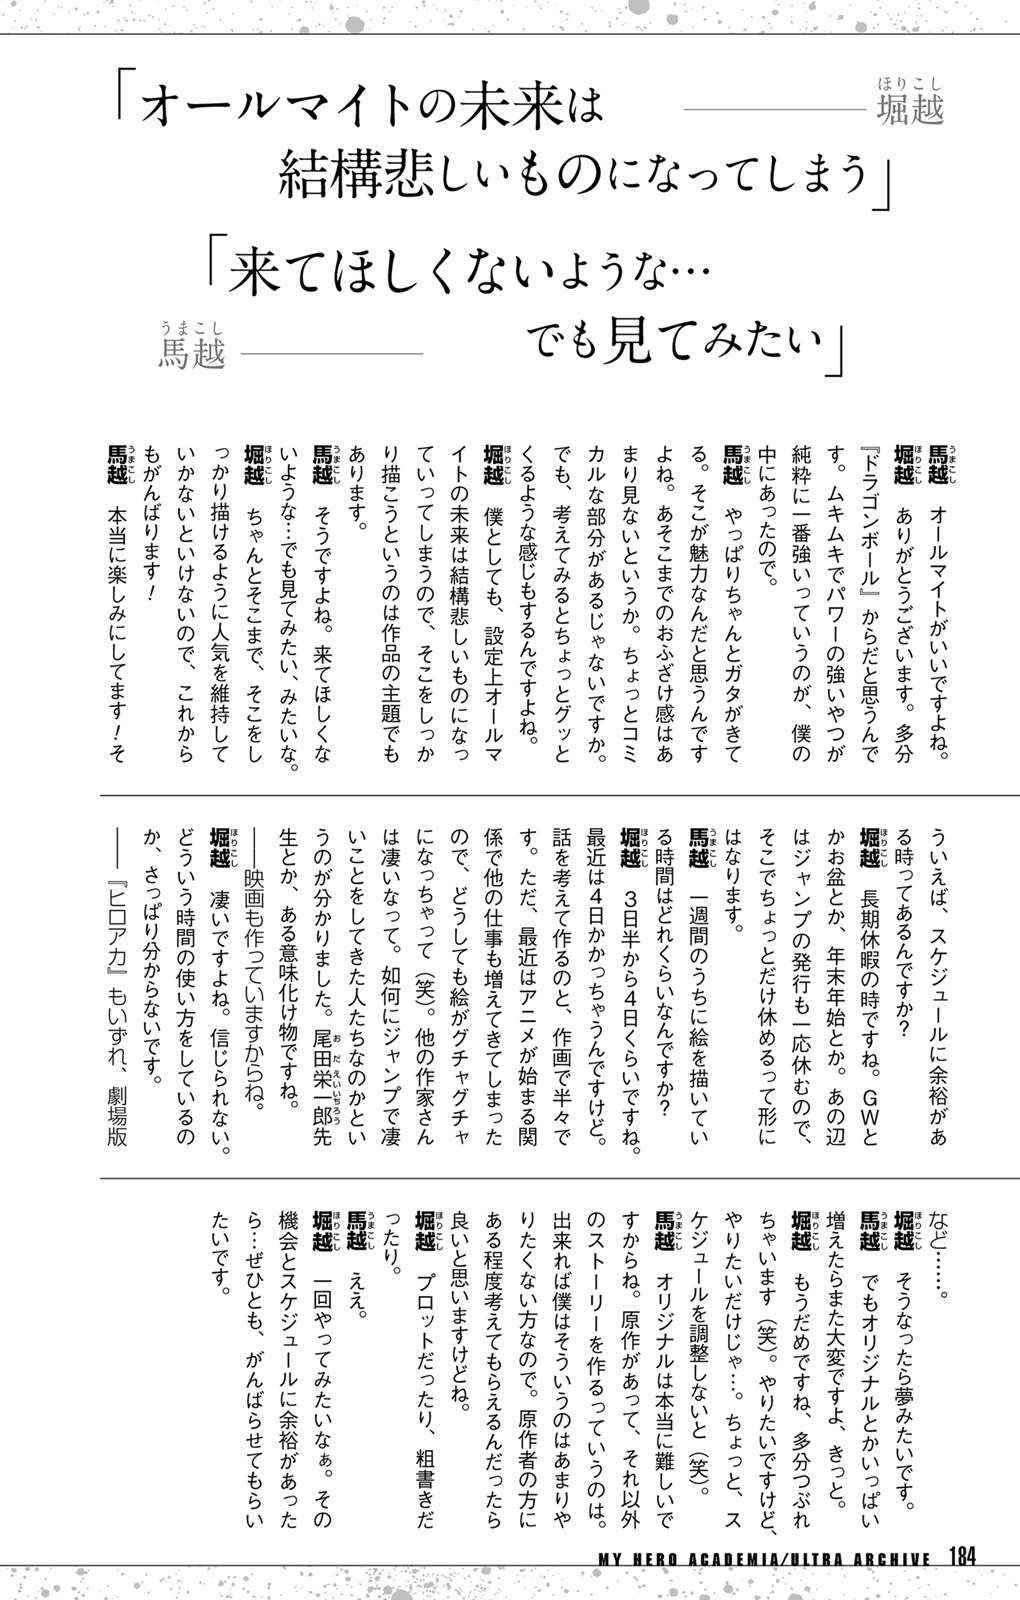 ほりこし
堀越
「オールマイトの未来は
結構悲しいものになってしまう」
「来てほしくないような…
でも見てみたい」
うまこし
馬越
馬越 オールマイトがいいですよね。
堀越 ありがとうございます。多分
『ドラゴンボール』からだと思うんで
す。ムキムキでパワーの強いやつが
純粋に一番強いっていうのが、僕の
中にあったので。
馬越 やっぱりちゃんとガタがきて
る。そこが魅力なんだと思うんです
よね。あそこまでのおふざけ感はあ
まり見ないというか。ちょっとコミ
カルな部分があるじゃないですか。
でも、考えてみるとちょっとグッと
くるような感じもするんですよね。
堀越 僕としても、設定上オールマ
イトの未来は結構悲しいものになっ
ていってしまうので、そこをしっか
り描こうというのは作品の主題でも
あります。
馬越 そうですよね。来てほしくな
いような…でも見てみたい、みたいな。
堀越 ちゃんとそこまで、そこをし
っかり描けるように人気を維持して
いかないといけないので、これから
もがんばります!
馬越 本当に楽しみにしてます!そ
ういえば、スケジュールに余裕があ
る時ってあるんですか?
堀越 長期休暇の時ですね。GWと
かお盆とか、年末年始とか。あの辺
はジャンプの発行も一応休むので、
そこでちょっとだけ休めるって形に
はなります。
馬越 一週間のうちに絵を描いてい
る時間はどれくらいなんですか?
堀越 3日半から4日くらいですね。
最近は4日かかっちゃうんですけど。
話を考えて作るのと、作画で半々で
す。ただ、最近はアニメが始まる関
係で他の仕事も増えてきてしまった
ので、どうしても絵がグチャグチャ
になっちゃって(笑)。他の作家さん
は凄いなって。如何にジャンプで凄
いことをしてきた人たちなのかとい
うのが分かりました。尾田栄一郎先
生とか、ある意味化け物ですね。
――映画も作っていますからね。
堀越 凄いですよね。信じられない。
どういう時間の使い方をしているの
か、さっぱり分からないです。
――『ヒロアカ』もいずれ、劇場版
など……。
堀越 そうなったら夢みたいです。
馬越 でもオリジナルとかいっぱい
増えたらまた大変ですよ、きっと。
堀越 もうだめですね、多分つぶれ
ちゃいます(笑)。やりたいですけど、
やりたいだけじゃ…。ちょっと、ス
ケジュールを調整しないと(笑)。
馬越 オリジナルは本当に難しいで
すからね。原作があって、それ以外
のストーリーを作るっていうのは。
出来れば僕はそういうのはあまりや
りたくない方なので。原作者の方に
ある程度考えてもらえるんだったら
良いと思いますけどね。
堀越 プロットだったり、粗書きだ
ったり。
馬越 ええ。
堀越 一回やってみたいなぁ。その
機会とスケジュールに余裕があった
ら…ぜひとも、がんばらせてもらい
たいです。
MY HERO ACADEMIA/ULTRA ARCHIVE 184